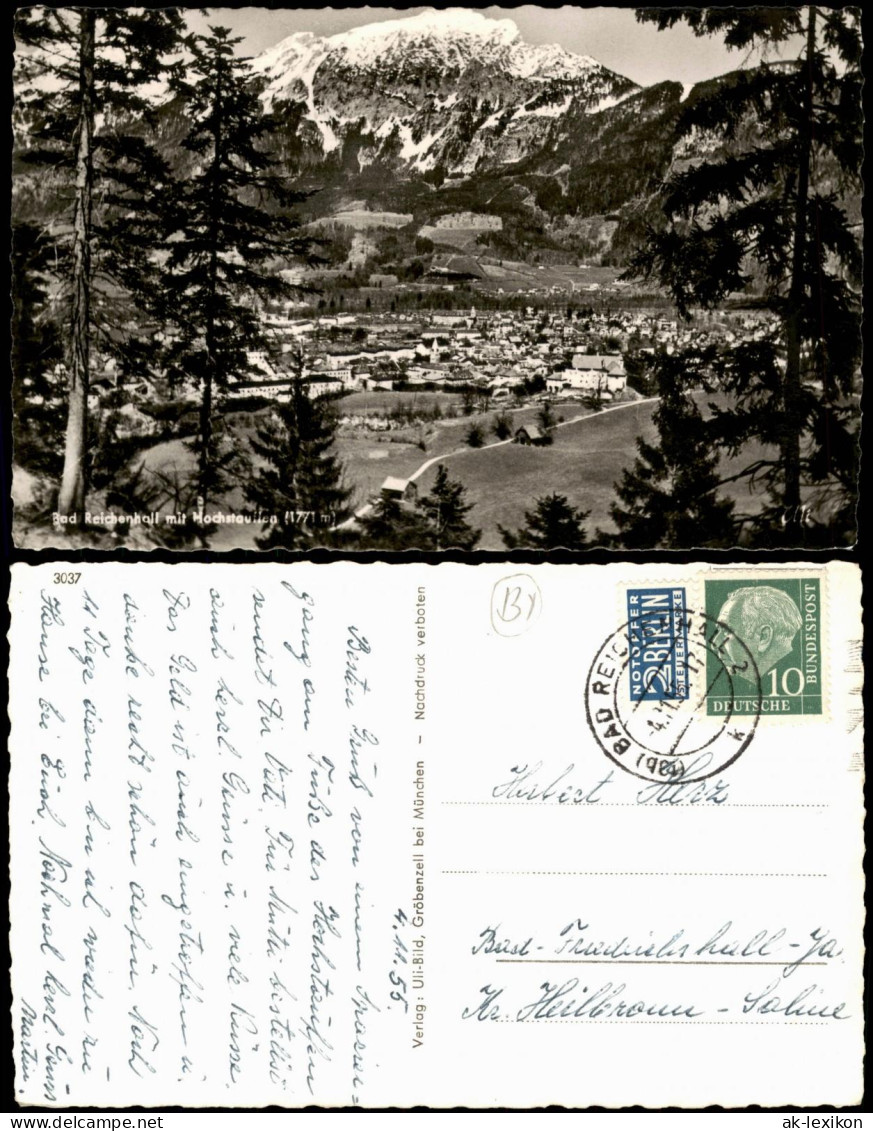 Bad Reichenhall mit Hochstaufen (1771 m)
3037
4.11.55
Besten Gruß von einem Spazier=
gang am Fuße des Hochstaufen
sendet Dir Vati. Für Mutti bestellst
auch herzl. Grüsse u. viele Küsse.
Das Geld ist auch eingetroffen u.
danke recht schön dafür. Noch
11 Tage dann bin ich wieder zu
Hause bei Euch. Nochmal herzl. Grüss
Martin.
Verlag: Uli-Bild, Gröbenzell bei München – Nachdruck verboten
By
NOTOPFER
2 BERLIN
STEUERMARKE
10
DEUTSCHE
BUNDESPOST
(13b) BAD REICHENHALL 2
k
Herbert Herz
Bad-Friedrichshall-Ja.
Kr. Heilbronn-Saline
ak-lexikon